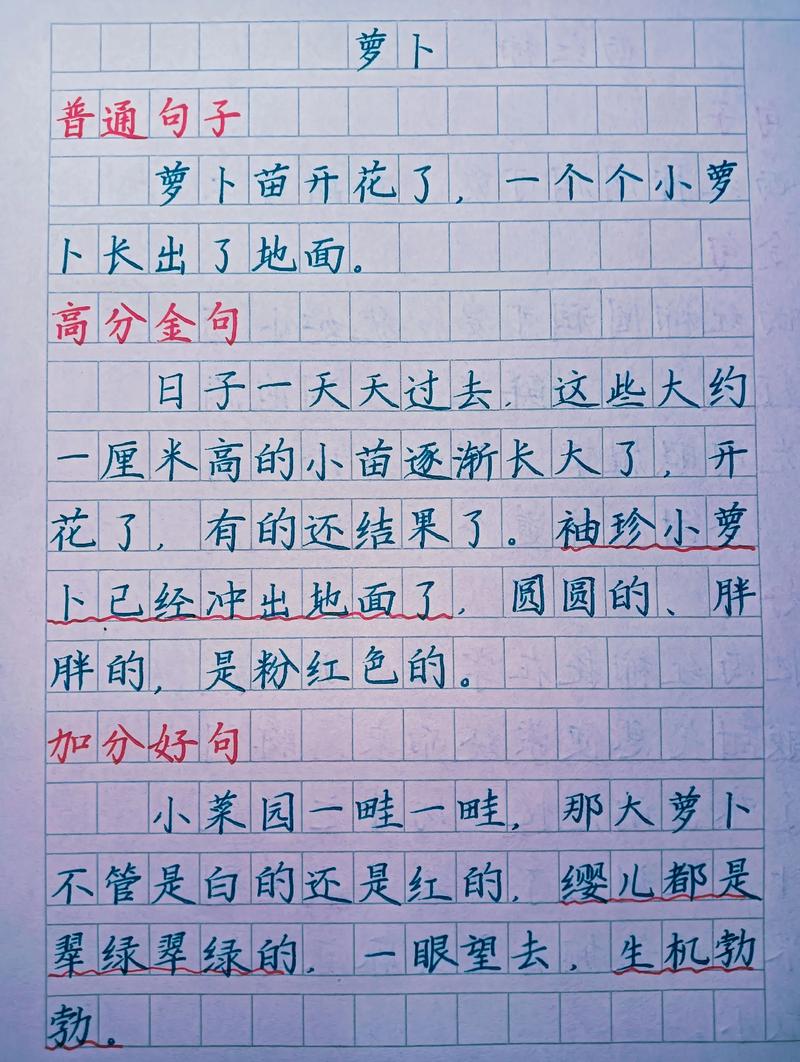 萝卜
普通句子
萝卜苗开花了，一个个小萝
卜长出了地面。
高分金句
日子一天天过去，这些大约
一厘米高的小苗逐渐长大了，开
花了，有的还结果了。袖珍小萝
卜已经冲出地面了，圆圆的、胖
胖的，是粉红色的。
加分好句
小菜园一畦一畦，那大萝卜
不管是白的还是红的，缨儿都是
翠绿翠绿的，一眼望去，生机勃
勃。